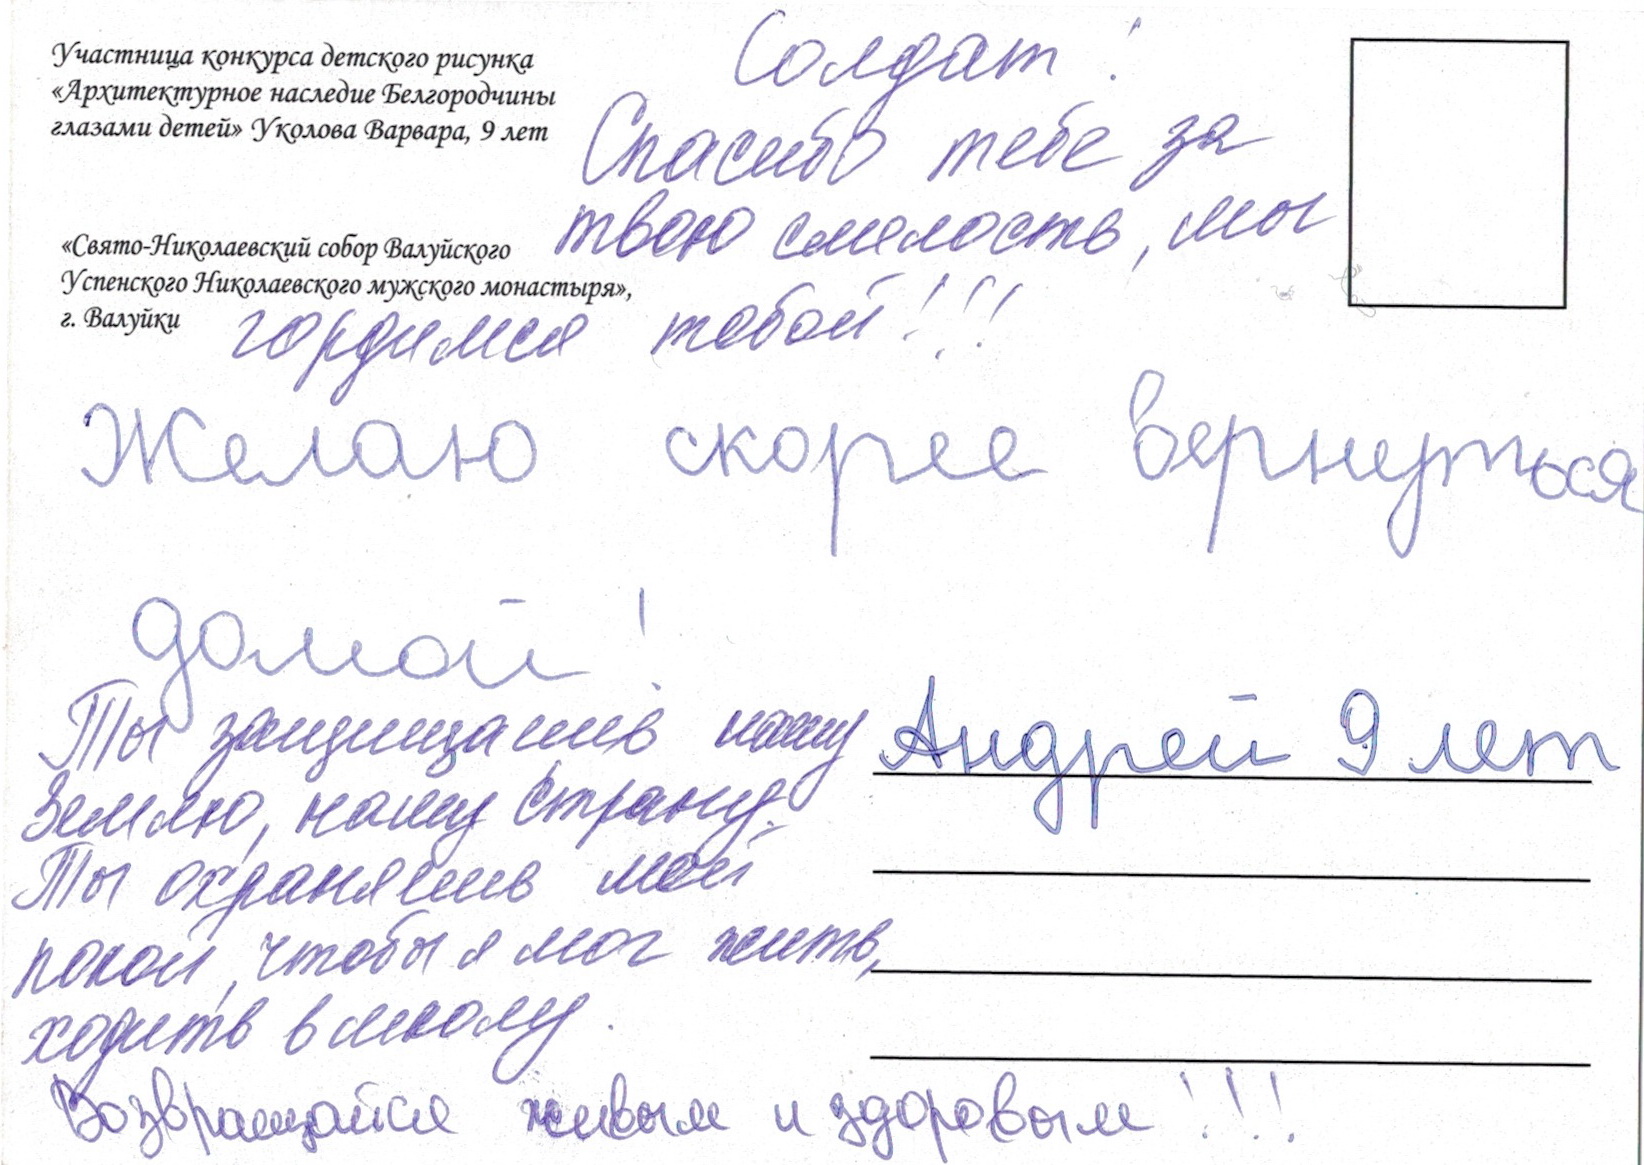 Участница конкурса детского рисунка
«Архитектурное наследие Белгородчины
глазами детей» Уколова Варвара, 9 лет
«Свято-Николаевский собор Валуйского
Успенского Николаевского мужского монастыря»,
г. Валуйки
Солдат!
Спасибо тебе за
твою смелость, мы
гордимся тобой!!!
Желаю скорее вернуться
домой!
Ты защищаешь нашу
Землю, нашу Страну.
Ты охраняешь мой
покой, чтобы я мог жить,
ходить в школу.
Возвращайся живым и здоровым!!!
Андрей 9 лет